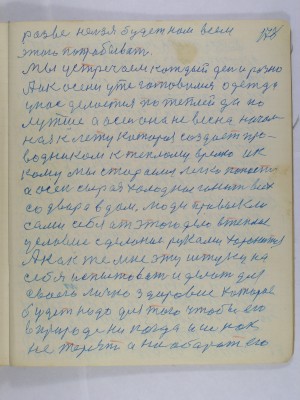 разве нельзя будет нам всем
этого потребывать.
Мы устречаем каждый ден о разно
А как осени уже готовимся одежда
у нас делается по теплей да по
лутше а осен она не весна начал
ная к лету которая создает про-
водником к теплому время и к
кому мы стараимся легко
а осен сырая холодная гонит всех
со двора в дом. Люди привыкли
сами себя от этого дело в теплые
условие сделаные руками хоронится
А как же мне эту штуку на
себя испытоват и делат для
своего лично здоровие которое
будет надо для того чтобы его
в природе ни когда и ни как
не терят а наоборот его